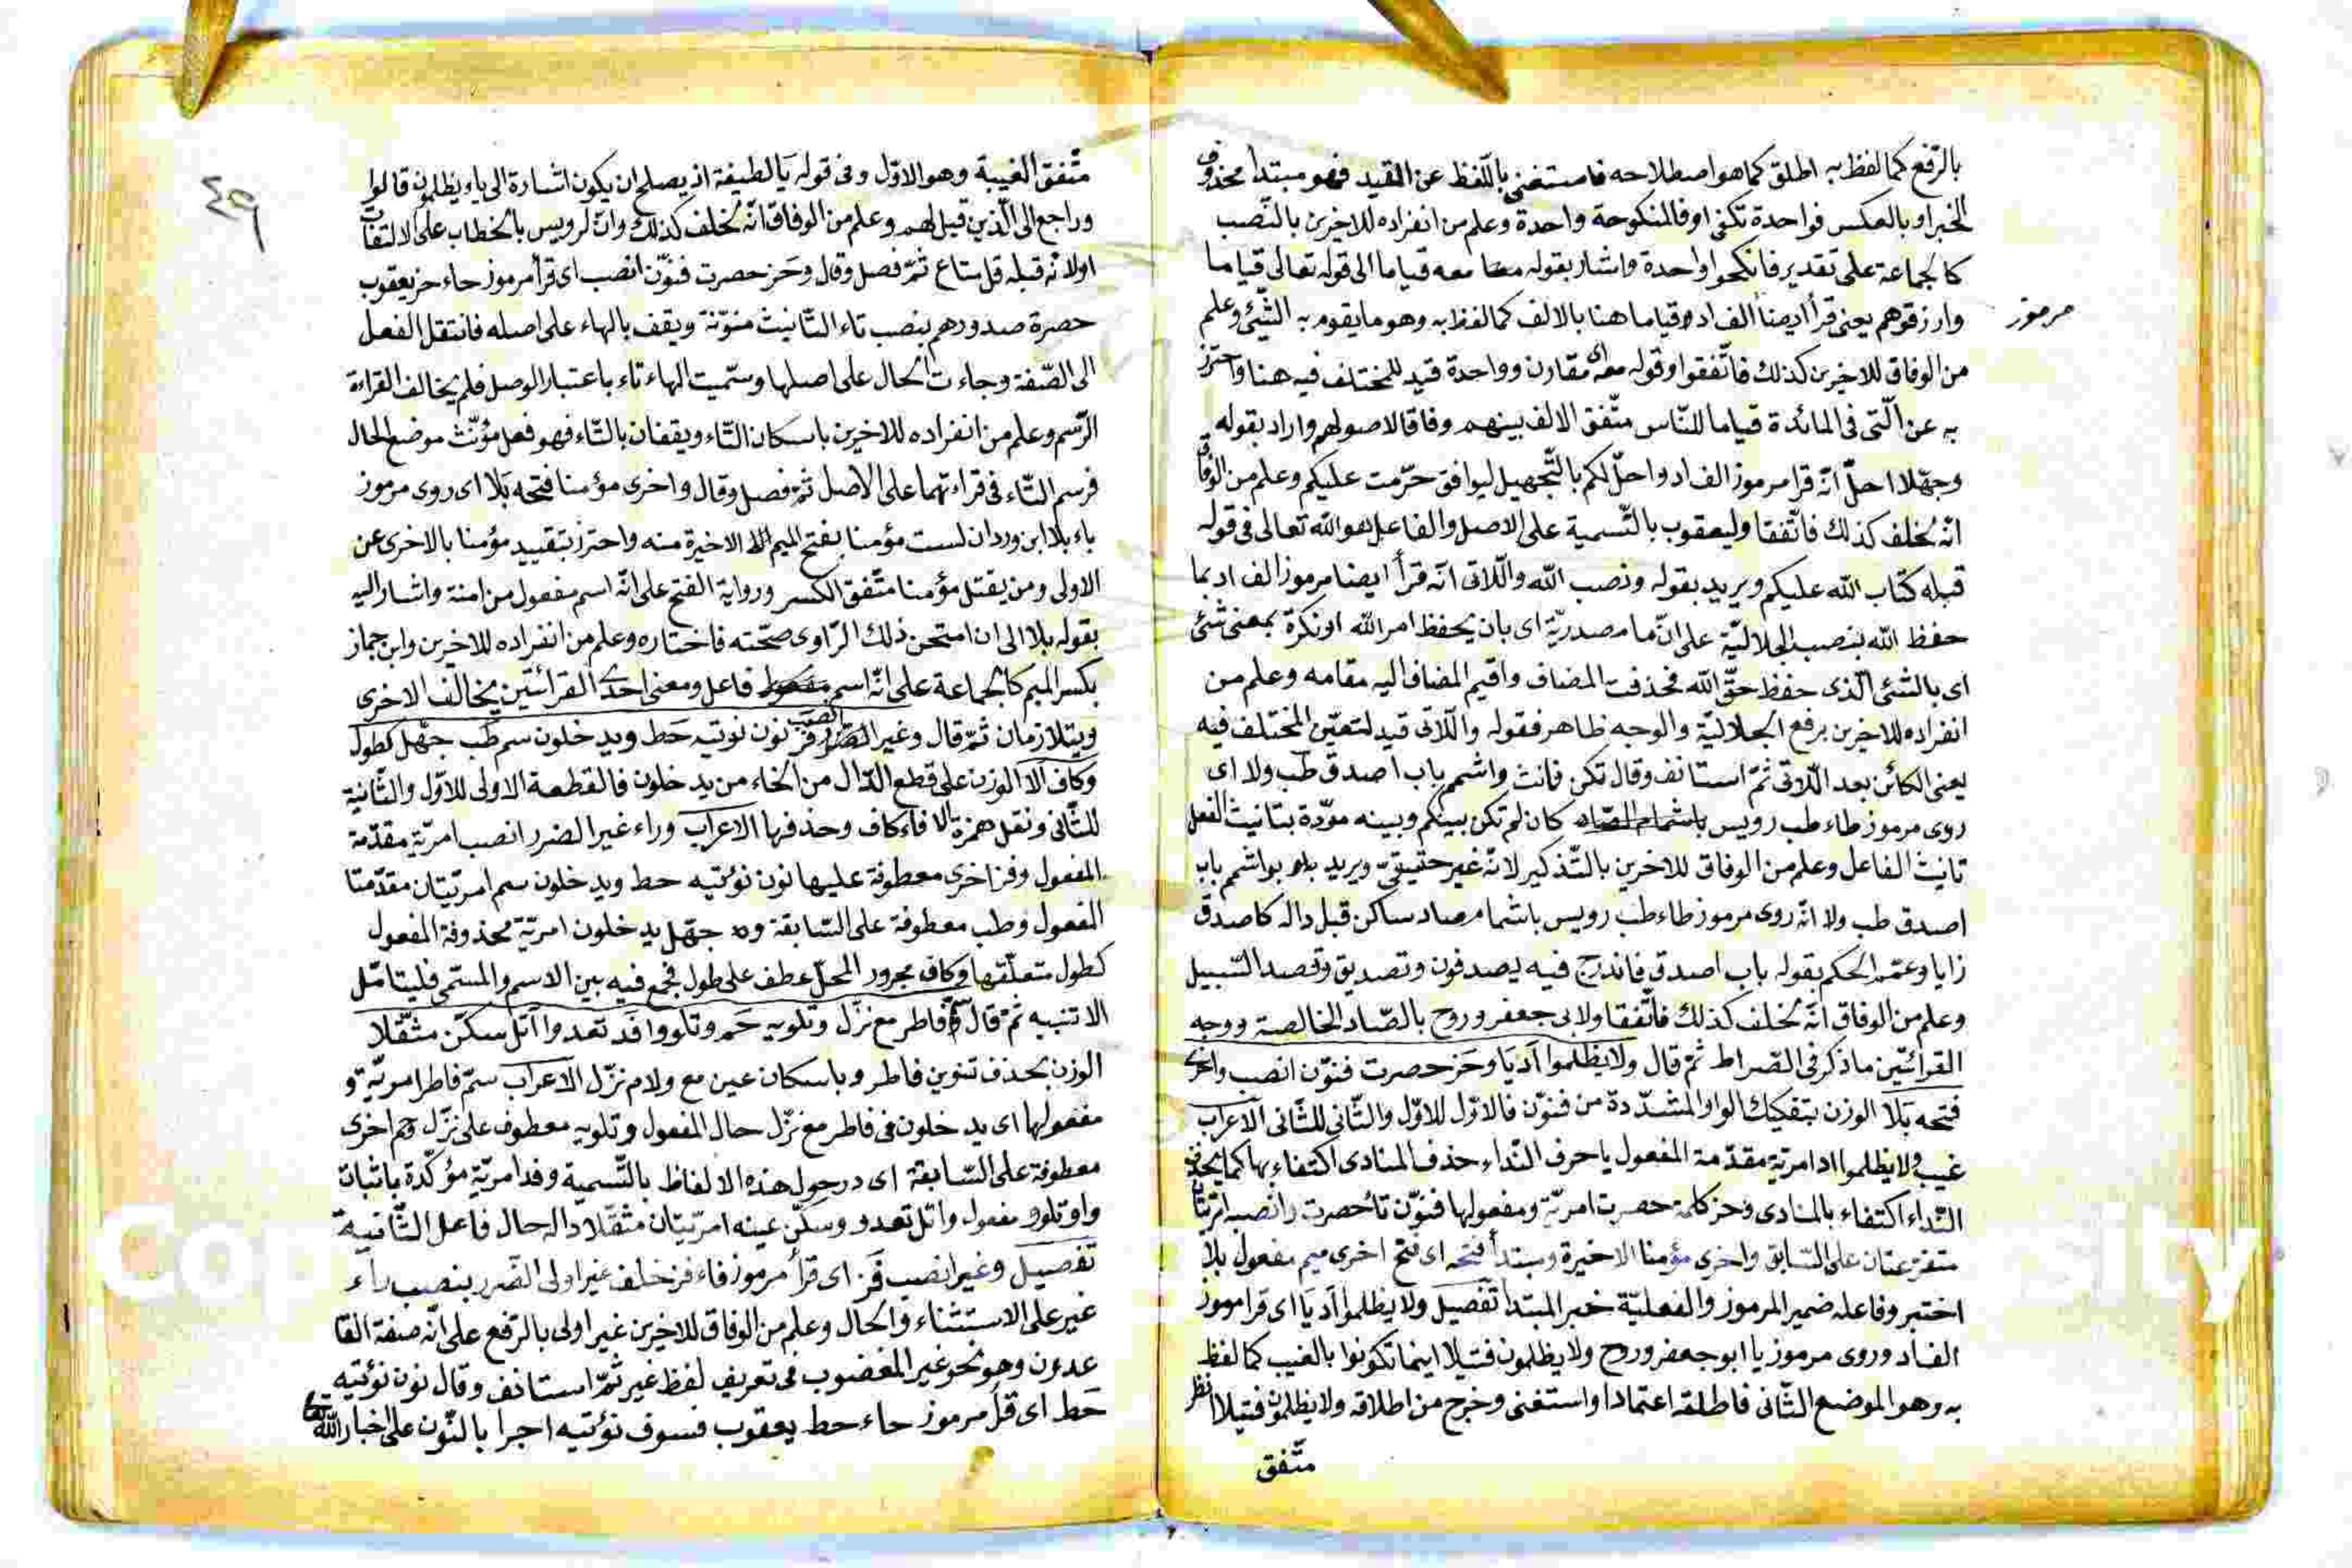 بالرّفع كما لفظ به اطلق كما هو اصطلاحه فاستغنى باللّفظ عن القيد فهو مبتدأ محذوف
الخبر او بالعكس فواحدة تكفى او فالمنكوحة واحدة وعلم من انفراده للاخرين بالنّصب
كالجماعة على تقدير فانكحوا واحدة واشار بقوله معا معه قياما الى قوله تعالى قياما
وارزقوهم يعنى قرأ ايضا الف اد وقياما هنا بالالف كما لفظ به وهو ما يقوم به الشّئ وعلم
مرموز
من الوفاق للاخرين كذلك فاتّفقوا وقوله معه اى مقارن وواحدة قيد للمختلف فيه هنا واحترز
به عن الّتى فى المائدة قياما للنّاس متّفق الالف بينهم وفاقا لاصولهم واراد بقوله
وجهّلا احلّ انّه قرا مرموز الف اد واحلّ لكم بالتّجهيل ليوافق حرّمت عليكم وعلم من الوفاق
انّه لخلف كذلك فاتّفقا وليعقوب بالتّسمية على الاصل والفاعل هو الله تعالى فى قوله
قبله كتاب الله عليكم ويريد بقوله ونصب الله واللّاتى انّه قرأ ايضا مرموز الف اد بما
حفظ الله بنصب الجلاليّة على انّ ما مصدريّة اى بان يحفظ امر الله او نكرة بمعنى شئ
اى بالشّئ الّذى حفظ حقّ الله فحذفت المضاف واقيم المضاف اليه مقامه وعلم من
انفراده للاخرين برفع الجلاليّة والوجه ظاهر فقوله واللّاتى قيد لتعيّن المختلف فيه
يعنى الكائن بعد اللّاتى ثمّ استانف وقال تكن فانث واشمم باب اصدق طب ولا اى
روى مرموز طاء طب رويس كان لم تكن بينكم وبينه مودّة بتانيث الفعل
تانيث الفاعل وعلم من الوفاق للاخرين بالتّذكير لانّه غير حقيقىّ ويريد بواشمم باب
اصدق طب ولا انّه روى مرموز طاء طب رويس باشمام صاد ساكن قبل داله كاصدق
زايا وعمّم الحكم بقوله باب اصدق فاندرج فيه يصدفون وتصديق وقصد السّبيل
وعلم من الوفاق انّه لخلف كذلك فاتّفقا ولابى جعفر وروح بالصّاد الخالصة ووجه
القرائتين ما ذكر فى الصّراط ثمّ قال ولا يظلموا اد يا وحز حصرت فنوّن انصب واخرى
فتحه بلا الوزن بتفكيك الواو المشدّدة من فنوّن فالاوّل للاوّل والثّانى للثّانى الاعراب
غيب ولا يظلموا اد امريّة مقدّمة المفعول يا حرف النّداء حذف المنادى اكتفاء بها كما يحذف
النّداء اكتفاء بالمنادى وحز كلمة حصرت امريّة ومفعولها فنوّن تا حصرت وانصب امريّتان
متفرّعتان على السّابق واخرى مؤمنا الاخيرة ومبتدأ فتحه اى فتح اخرى ميم مفعول بلا
اختبر وفاعله ضمير المرموز والفعليّة خبر المبتدا تفصيل ولا يظلموا اد يا اى قرا مرموز
الف اد وروى مرموز يا ابو جعفر وروح ولا يظلمون فتيلا اينما تكونوا بالغيب كما لفظ
به وهو الموضع الثّانى فاطلقه اعتمادا واستغنى وخرج من اطلاقه ولا يظلمون فتيلا انظر
متّفق
٤٩
متّفق الغيبة وهو الاوّل وفى قوله يا لطيفة اذ يصلح ان يكون اشارة الى ياء ويظلمون قالوا
وراجع الى الّذين قيل لهم وعلم من الوفاق انّه لخلف كذلك وانّ لرويس بالخطاب على الالتفات
اولانّه قبله قل متاع ثمّ فصل وقال وحز حصرت فنوّن انصب اى قرأ مرموز حاء حز يعقوب
حصرة صدورهم بنصب تاء التّانيث منوّنة ويقف بالهاء على اصله فانتقل الفعل
الى الصّفة وجاءت الحال على اصلها وسمّيت الهاء تاء باعتبار الوصل فلم يخالف القراءة
الرّسم وعلم من انفراده للاخرين باسكان التّاء ويقفان بالتّاء فهو فعل مؤنّث موضع الحال
فرسم التّاء فى قراءتهما على الاصل ثمّ فصل وقال واخرى مؤمنا فتحه بلا اى روى مرموز
باء بلا ابن وردان لست مؤمنا بفتح الميم الاخيرة منه واحترز بتقييد مؤمنا بالاخرى عن
الاولى ومن يقتل مؤمنا متّفق الكسر ورواية الفتح على انّه اسم مفعول من امنة واشار اليه
بقوله بلا الى ان امتحن ذلك الرّاوى صحّته فاختاره وعلم من انفراده للاخرين وابن جماز
بكسر الميم كالجماعة على انّه اسم فاعل ومعنى احدى القرائتين يخالف الاخرى
ويتلازمان ثمّ قال وغير انصب فز نون نوتيه حط ويدخلون سم طب جهّل كطول
وكاف الا الوزن على قطع الدّال من الخاء من يدخلون فالقطعة الاولى للاوّل والثّانية
للثّانى ونقل همزة الا فاء كاف وحذفها الاعراب وراء غير الضرر انصب امريّة مقدّمة
المفعول وفز اخرى معطوفة عليها نون نؤتيه حط ويدخلون سم امريّتان مقدّمتا
المفعول وطب معطوفة على السّابقة وجهّل يدخلون امريّة محذوفة المفعول
كطول متعلّقها وكاف مجرور المحلّ عطف على طول فجمع فيه بين الاسم والمسمّى فليتامّل
الا تنبيه ثمّ قال فاطر مع نزّل وتلويه حم وتلووا فد تعدوا اتل سكّن مثقّلا
الوزن بحذف تنوين فاطر وباسكان عين مع ولام نزّل الاعراب سمّ فاطر امريّة و
مفعولها اى يدخلون فى فاطر مع نزّل حال المفعول وتلويه معطوف على نزّل وحم اخرى
معطوفة على السّابقة اى درجول هذه الالفاظ بالتّسمية وفد امريّة مؤكّدة باثبات
واو تلوو مفعول واتل تعدو وسكّن عينه امريّتان مثقّلا داله حال فاعل الثّانية
تفصيل وغير انصب فز اى قرأ مرموز فاء فز خلف غير اولى الضّرر بنصب راء
غير على الاستثناء والحال وعلم من الوفاق للاخرين غير اولى بالرّفع على انّه صفة القا
عدون وهو نحو غير المغضوب فى تعريف لفظ غير ثمّ استانف وقال نون نؤتيه
حط اى قرأ مرموز حاء حط يعقوب فسوف نؤتيه اجرا بالنّون على اخبار الله تعا